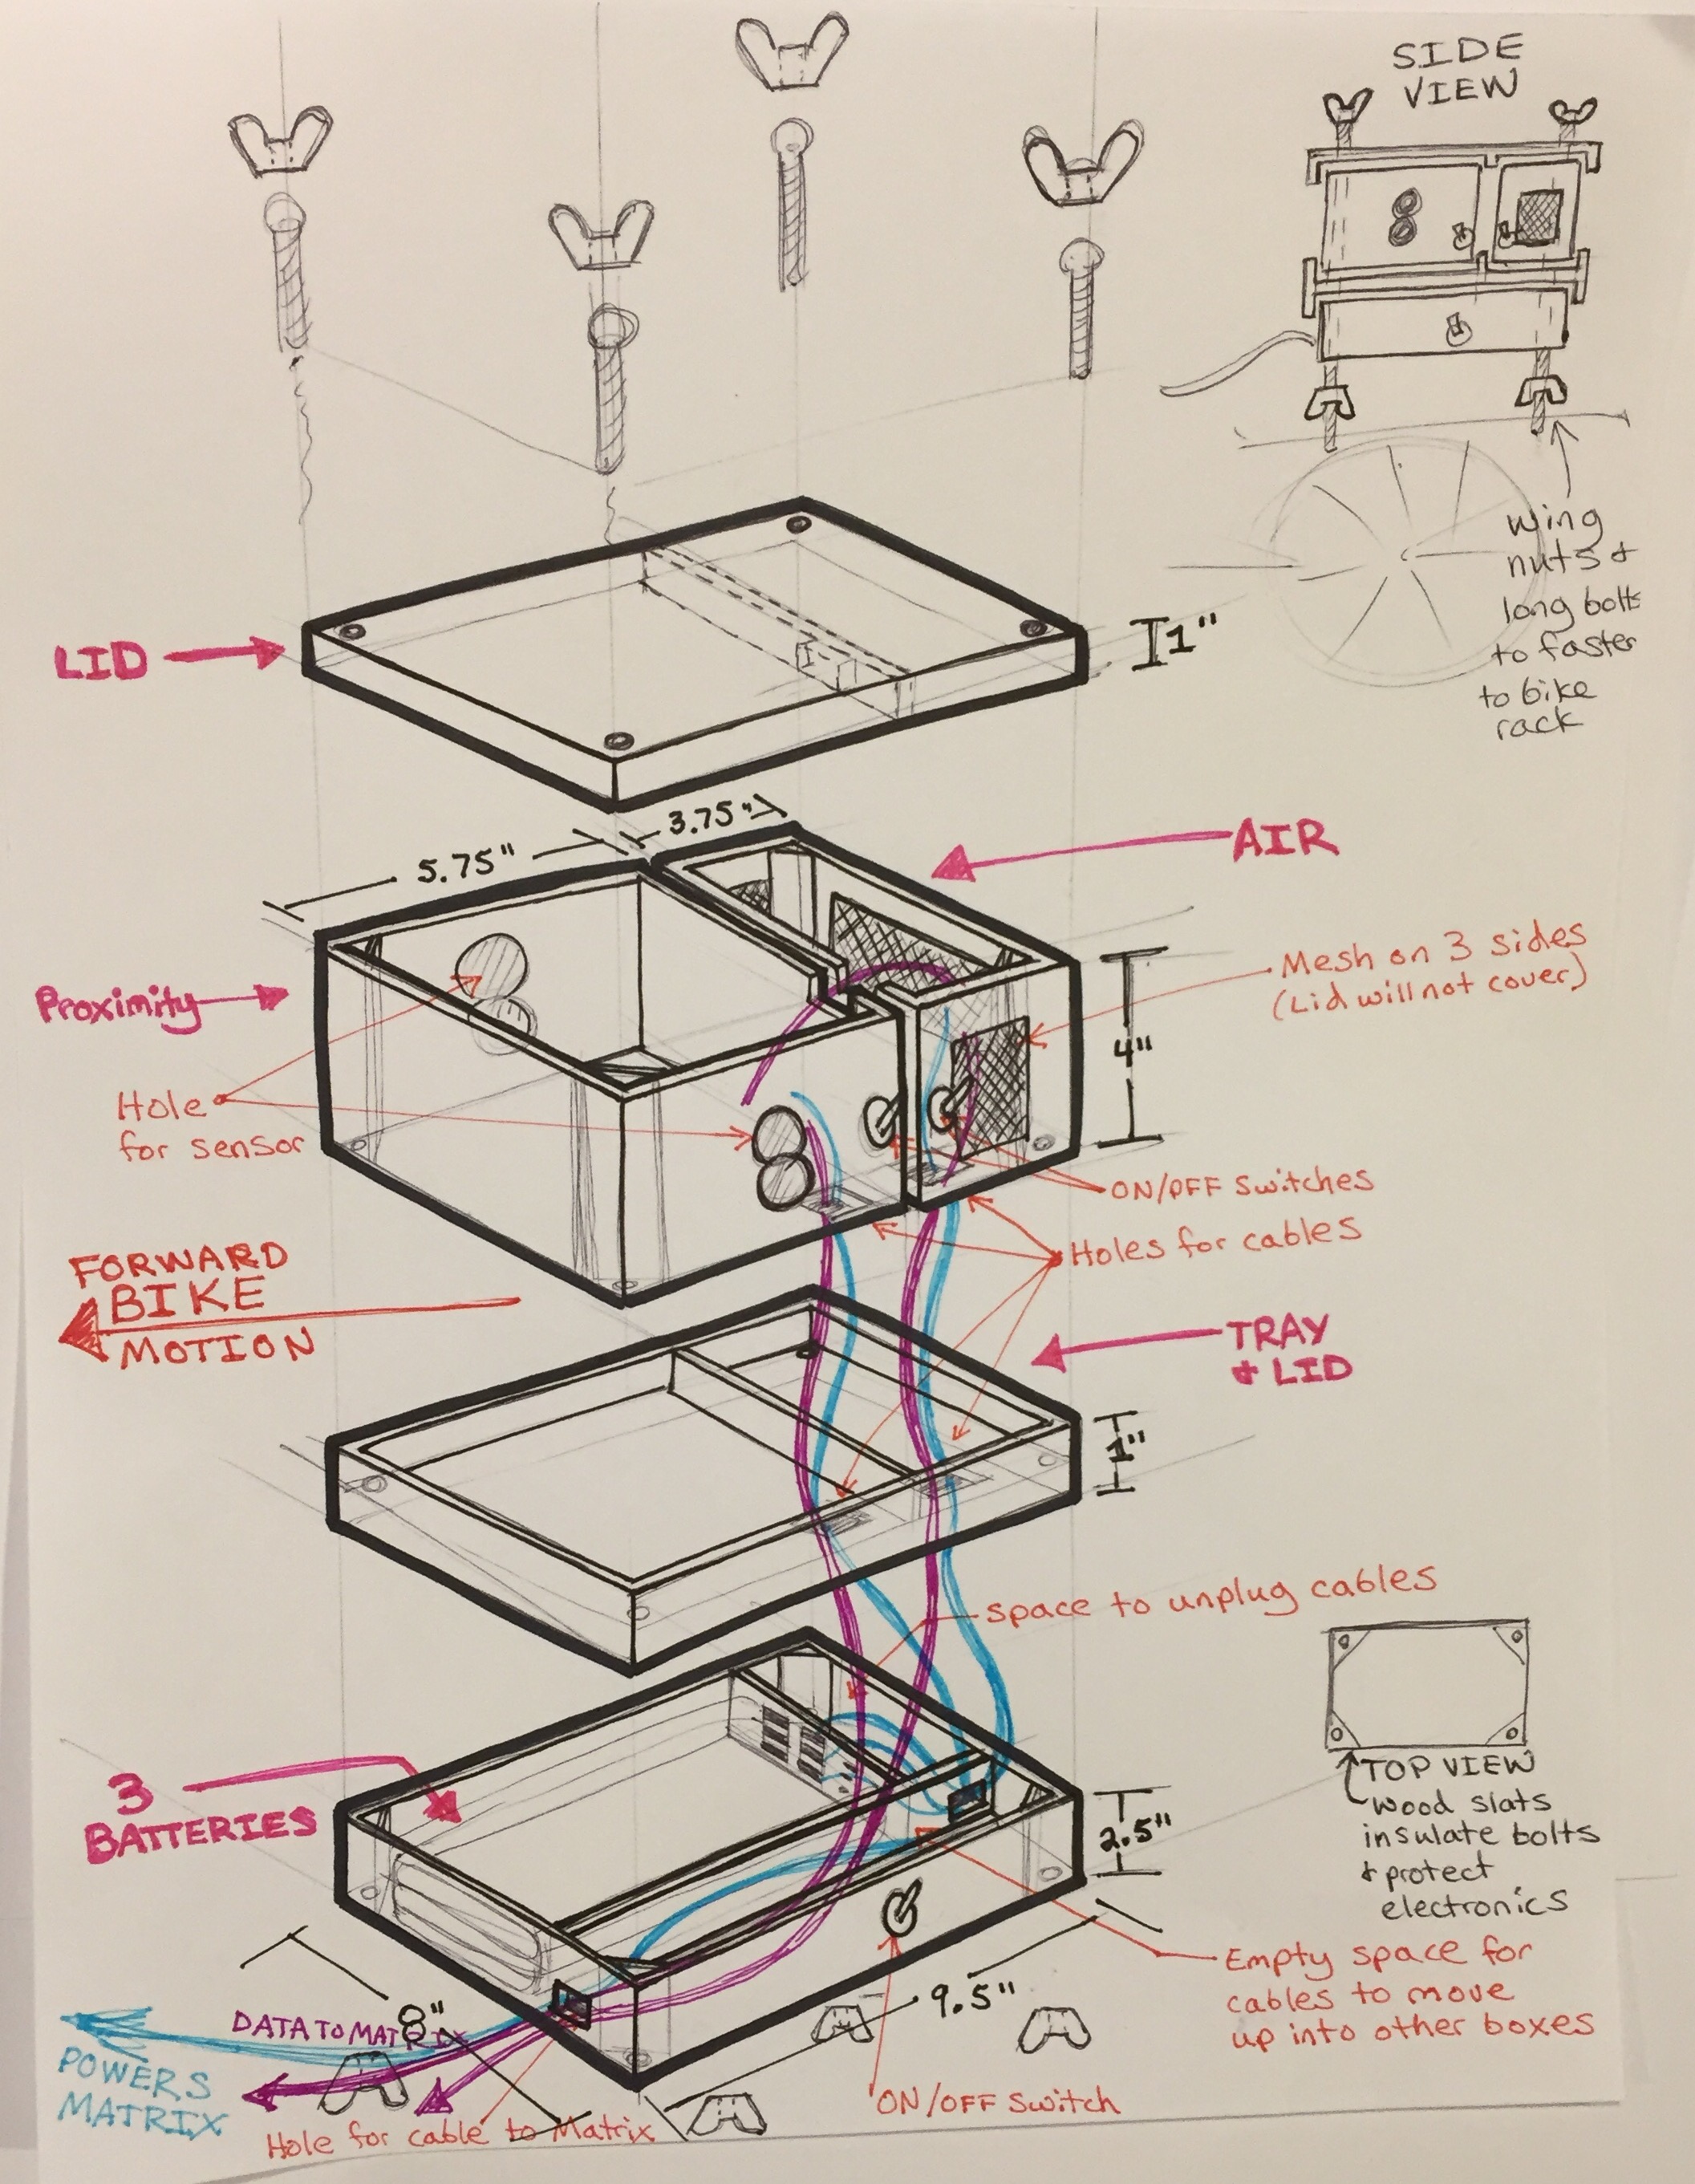 SIDE
VIEW
wing
nuts &
long bolts
to faster
to bike
rack
LID
1"
3.75"
5.75"
AIR
Mesh on 3 sides
(Lid will not cover)
Proximity
4"
Hole
for sensor
ON/OFF Switches
Holes for cables
FORWARD
BIKE
MOTION
TRAY
& LID
1"
space to unplug cables
TOP VIEW
wood slats
insulate bolts
& protect
electronics
3
BATTERIES
2.5"
Empty space for
cables to move
up into other boxes
9.5"
8"
DATA TO MATRIX
POWERS
MATRIX
ON/OFF Switch
Hole for cable to Matrix